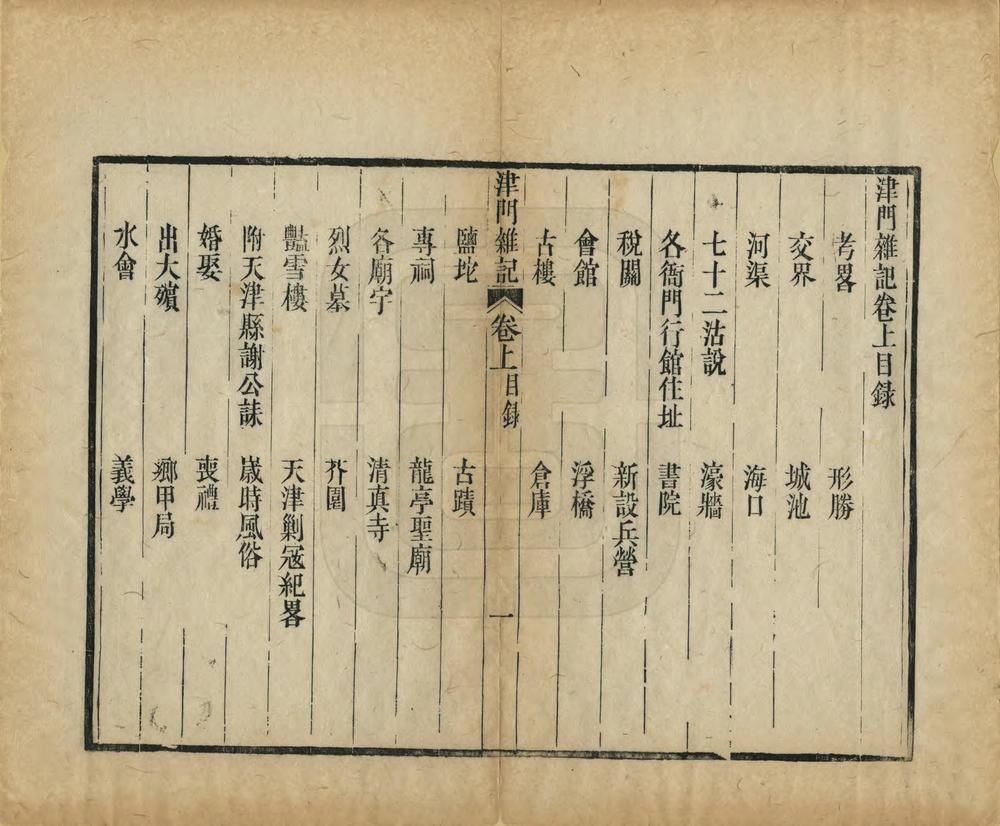 津門雜記卷上目録
考畧　形勝
交界　城池
河渠　海口
七十二沽説　濠牆
各衙門行館住址　書院
稅關　新設兵營
會館　浮橋
古樓　倉庫
津門雜記　卷上目録　一
鹽坨　古蹟
專祠　龍亭聖廟
各廟宇　清真寺
烈女墓　芥園
豔雪樓　天津剿寇紀畧
附天津縣謝公誄　歲時風俗
婚娶　喪禮
出大殯　鄉甲局
水會　義學